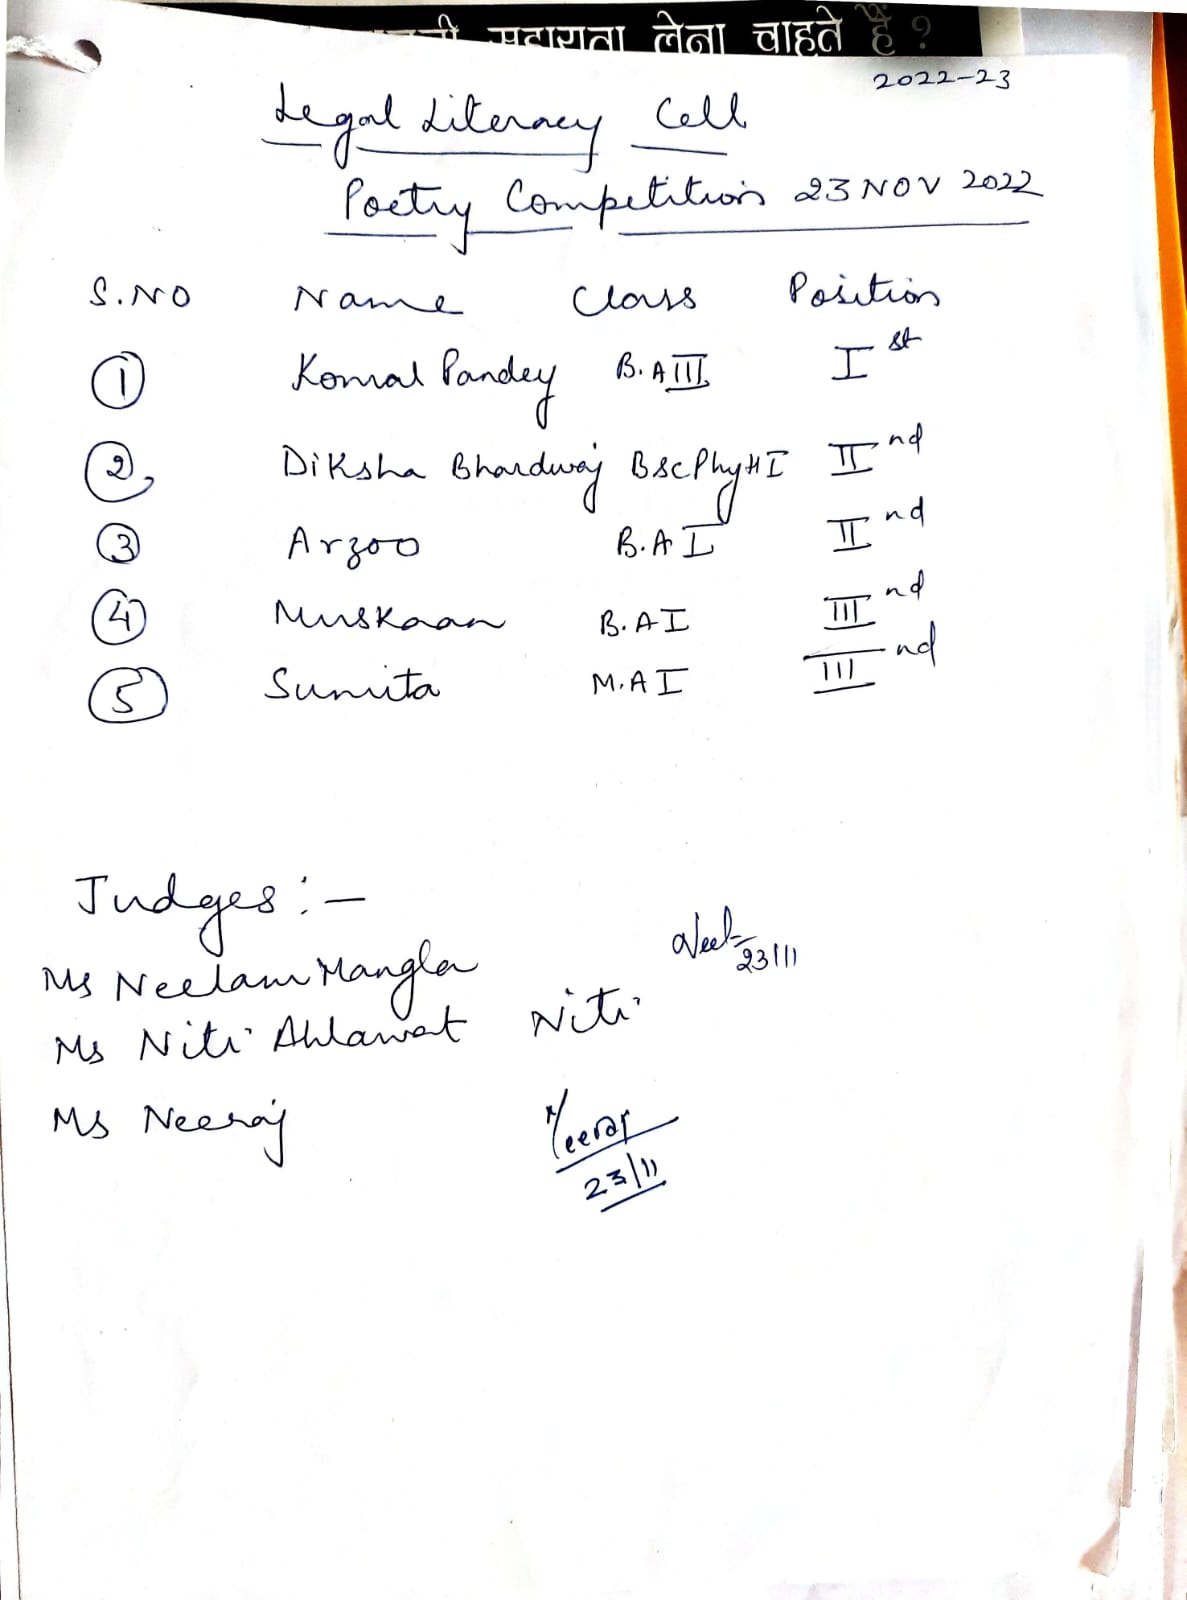 सहायता लेना चाहते हैं ?
2022-23
Legal Literacy Cell
Poetry Competition 23 NOV 2022
S.NO Name Class Position
1 Komal Pandey B.A III Ist
2 Diksha Bhardwaj Bsc Phy H I IInd
3 Arzoo B.A I IInd
4 Muskaan B.A I IIInd
5 Sumita M.A I IIInd
Judges :-
Ms Neelam Mangla Neel 23/11
Ms Niti Ahlawat Niti
Ms Neeraj Neeraj
23/11